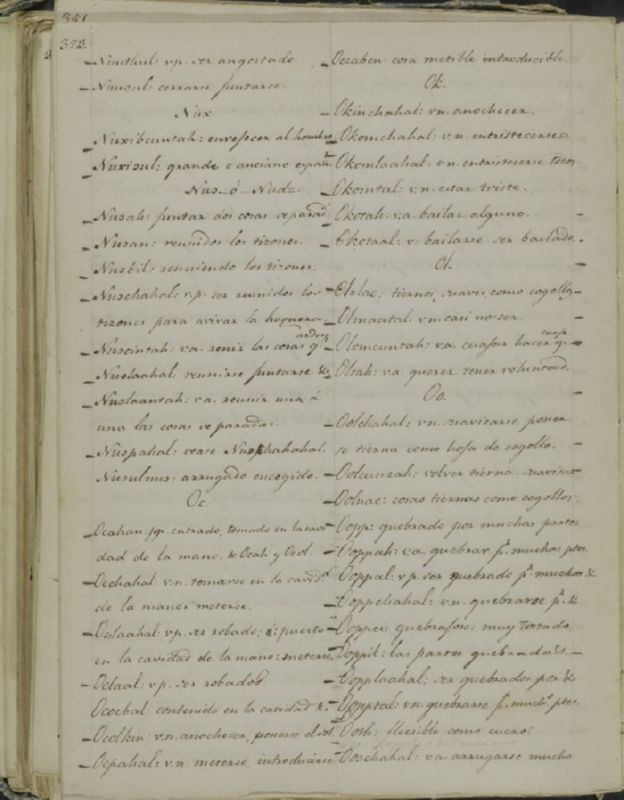 373.
Nunthul: v.p. ser angostado.
cerrarse juntarse.
Nux
Nuxibcuntah: envejecer al hombre
Nuxisul: grande o anciano
Nus_ó_Nudz.
Nusah: juntar dos cosas separad.
Nusan: reunidos los tizones.
Nusbil: reuniendo los tizones.
Nuschahal: v.p. ser reunidos los
tizones para avivar la hoguera
Nuscintah: v.a. las cosas q.
Nuslaahal: reunirse juntarse &.
Nuslaantah: v.a. reunir una á
una las cosas separadas.
Nuspahal: vease Nuschahahal.
Nusulnus: arrugado encogido.
Oc.
Ocahan: pp. entrado, tomado en la cavi
dad de la mano. & Ocah y Ocol.
Occhahal: v.n. tomarse en la cavid.d
de la mano: meterse.
Oclaahal: v.p. ser robado: ó: puesto
en la cavidad de la mano: meterse,
Oclaal: v.p. ser robados
Ococbal: contenido en la cavidad &.
Ocolkin: v.n. anochecer, ponerse el sol.
Ocpahal: v.n. meterse, introducirse
Oczaben: cosa metible introducible.
Ok.
Okinchahal: v.n. anochecer.
Okomchahal: v.n. entristecerse
Okomlaahal: v.n. entristecerse
Okomtal: v.n. estar triste.
Okotah: v.a. bailar alguno.
Okotaal: v. bailarse ser bailado.
Ol.
tiernos, suaves, como cogollo
Olmaatal: v.n. casi no ser.
Olomcuntah: v.a. cuajar hacer q. cuaje
Oltah: v.a. querer tener voluntad.
Oo.
Oolchahal: v.n. suavizarse poner
se tierna como hoja de cogollo.
Oolcunzah: volver tierna. suavizar
Oolnac: cosas tiernas como cogollos.
Oopp: quebrado por muchas partes
Ooppah: v.a. quebrar p.r muchas ptes.
Ooppal: v.p. ser quebrado p.r muchas &
Ooppchahal: v.n. quebrarse p.r &
Ooppci: muy tostado.
Ooppil: las partes quebradas.
Oopplaahal: ser quebrados por &
Oopptal: v.n. quebrarse p.r much.s ptes.
Ooth: flecsible como cuero.
Oothchahal: v.a. arrugarse mucho